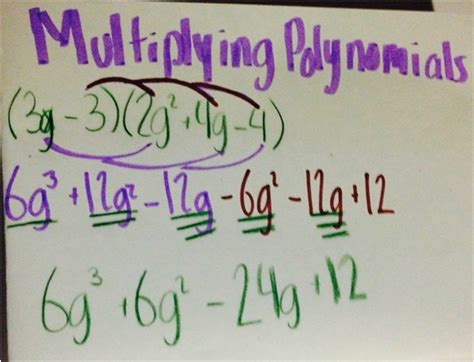 Multiplying Polynomials
(3g - 3)(2g² + 4g - 4)
6g³ + 12g² - 12g - 6g² - 12g + 12
6g³ + 6g² - 24g + 12